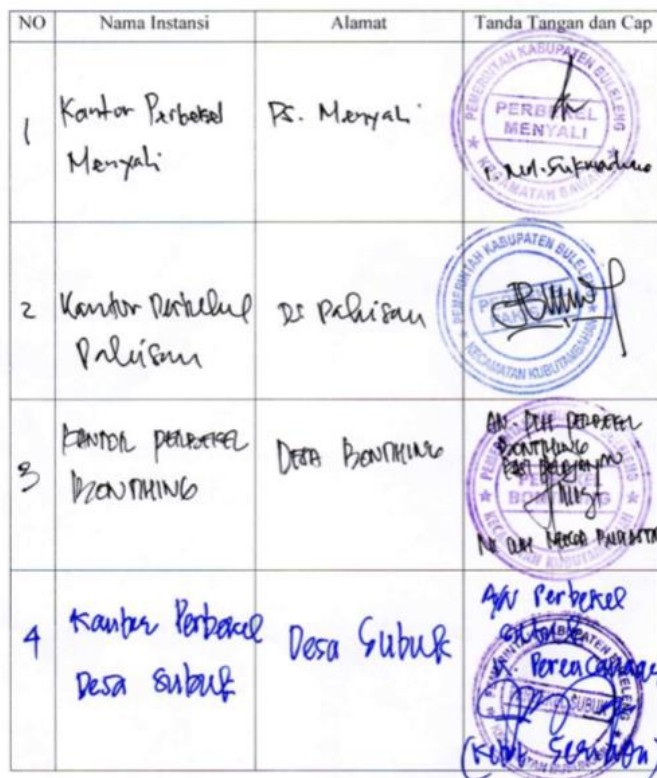 NO Nama Instansi Alamat Tanda Tangan dan Cap
1 Kantor Perbekel Ds. Menyali
Menyali
PEMERINTAH KABUPATEN BULELENG
PERBEKEL
MENYALI
KECAMATAN SAWAN
2 Kantor Perbekel Ds Pakisan
Pakisan
PEMERINTAH KABUPATEN BULELENG
KECAMATAN KUBUTAMBAHAN
3 KANTOR PERBEKEL DESA BONTIHING
BONTIHING
AN. PLH PERBEKEL
BONTIHING
PERBEKEL
BONTIHING
KECAMATAN KUBUTAMBAHAN
4 Kantor Perbekel Desa Subuk
Desa Subuk
A/N Perbekel
Subuk
SUBUK